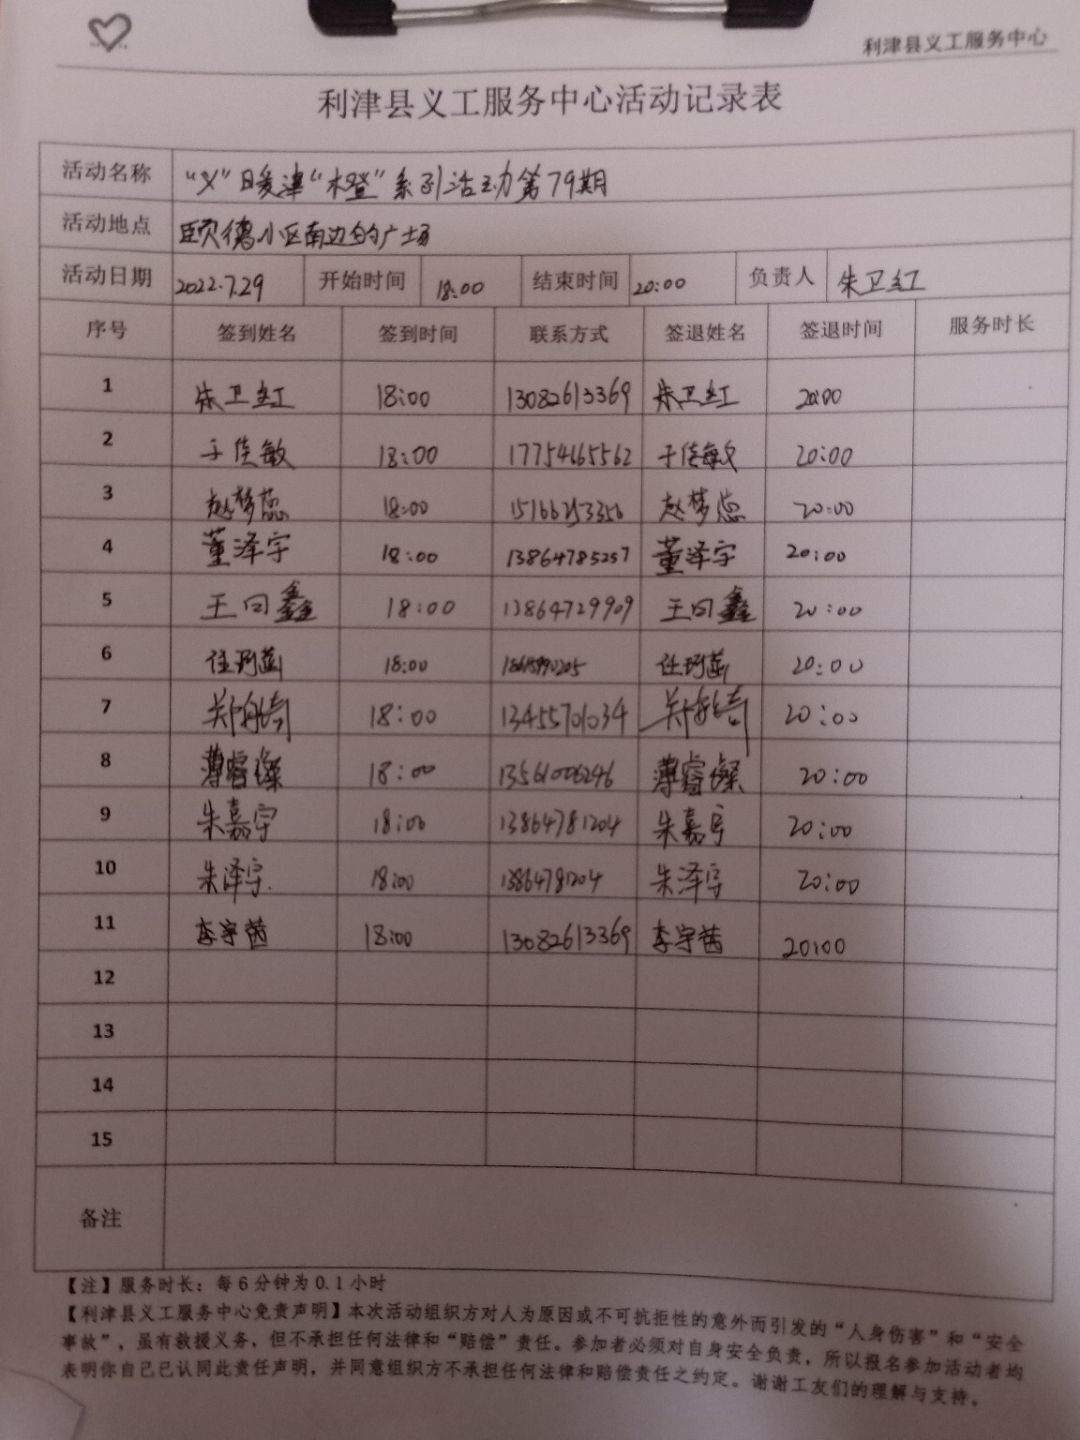 利津县义工服务中心
利津县义工服务中心活动记录表
活动名称 “义”暖津“橙”系列活动第79期
活动地点 颐德小区南边的广场
活动日期 2022.7.29 开始时间 18:00 结束时间 20:00 负责人 朱卫红
序号 签到姓名 签到时间 联系方式 签退姓名 签退时间 服务时长
1 朱卫红 18:00 13082613369 朱卫红 20:00
2 于佳敏 18:00 17754665562 于佳敏 20:00
3 赵梦蕊 18:00 15166253356 赵梦蕊 20:00
4 董泽宇 18:00 13864785257 董泽宇 20:00
5 王同鑫 18:00 13864729909 王同鑫 20:00
6 任珂菡 18:00 任珂菡 20:00
7 18:00 13455701034 20:00
8 薄睿璨 18:00 13561006246 薄睿璨 20:00
9 朱嘉宇 18:00 13864781204 朱嘉宇 20:00
10 朱泽宇 18:00 13864781204 朱泽宇 20:00
11 李宇茜 18:00 13082613369 李宇茜 20:00
12
13
14
15
备注
【注】服务时长：每6分钟为0.1小时
【利津县义工服务中心免责声明】本次活动组织方对人为原因或不可抗拒性的意外而引发的“人身伤害”和“安全
事故”，虽有救援义务，但不承担任何法律和“赔偿”责任。参加者必须对自身安全负责，所以报名参加活动者均
表明你自己已认同此责任声明，并同意组织方不承担任何法律和赔偿责任之约定。谢谢工友们的理解与支持。